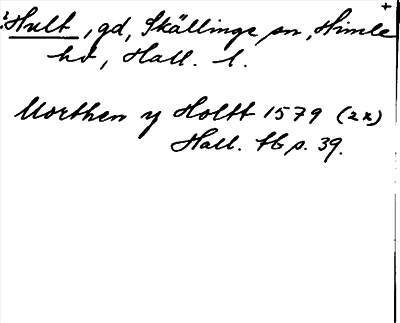 Hult, gd, Skällinge sn, Himle
hd, Hall. l.
Morthen y Holtt 1579 (2x)
Hall. tb s. 39.